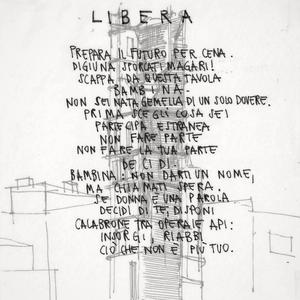 LIBERA
PREPARA IL FUTURO PER CENA.
DIGIUNA SPORCATI MAGARI!
SCAPPA DA QUESTA TAVOLA
BAMBINA.
NON SEI NATA GEMELLA DI UN SOLO DOVERE.
PRIMA SCEGLI COSA SEI
PARTECIPA ESTRANEA
NON FARE PARTE
NON FARE LA TUA PARTE
DECIDI.
BAMBINA: NON DARTI UN NOME,
MA CHIAMATI SPERA.
SE DONNA È UNA PAROLA
DECIDI DI TE, DISPONI
CALABRONE TRA OPERAIE API:
INSORGI, RIABBI
CIÒ CHE NON È PIÙ TUO.